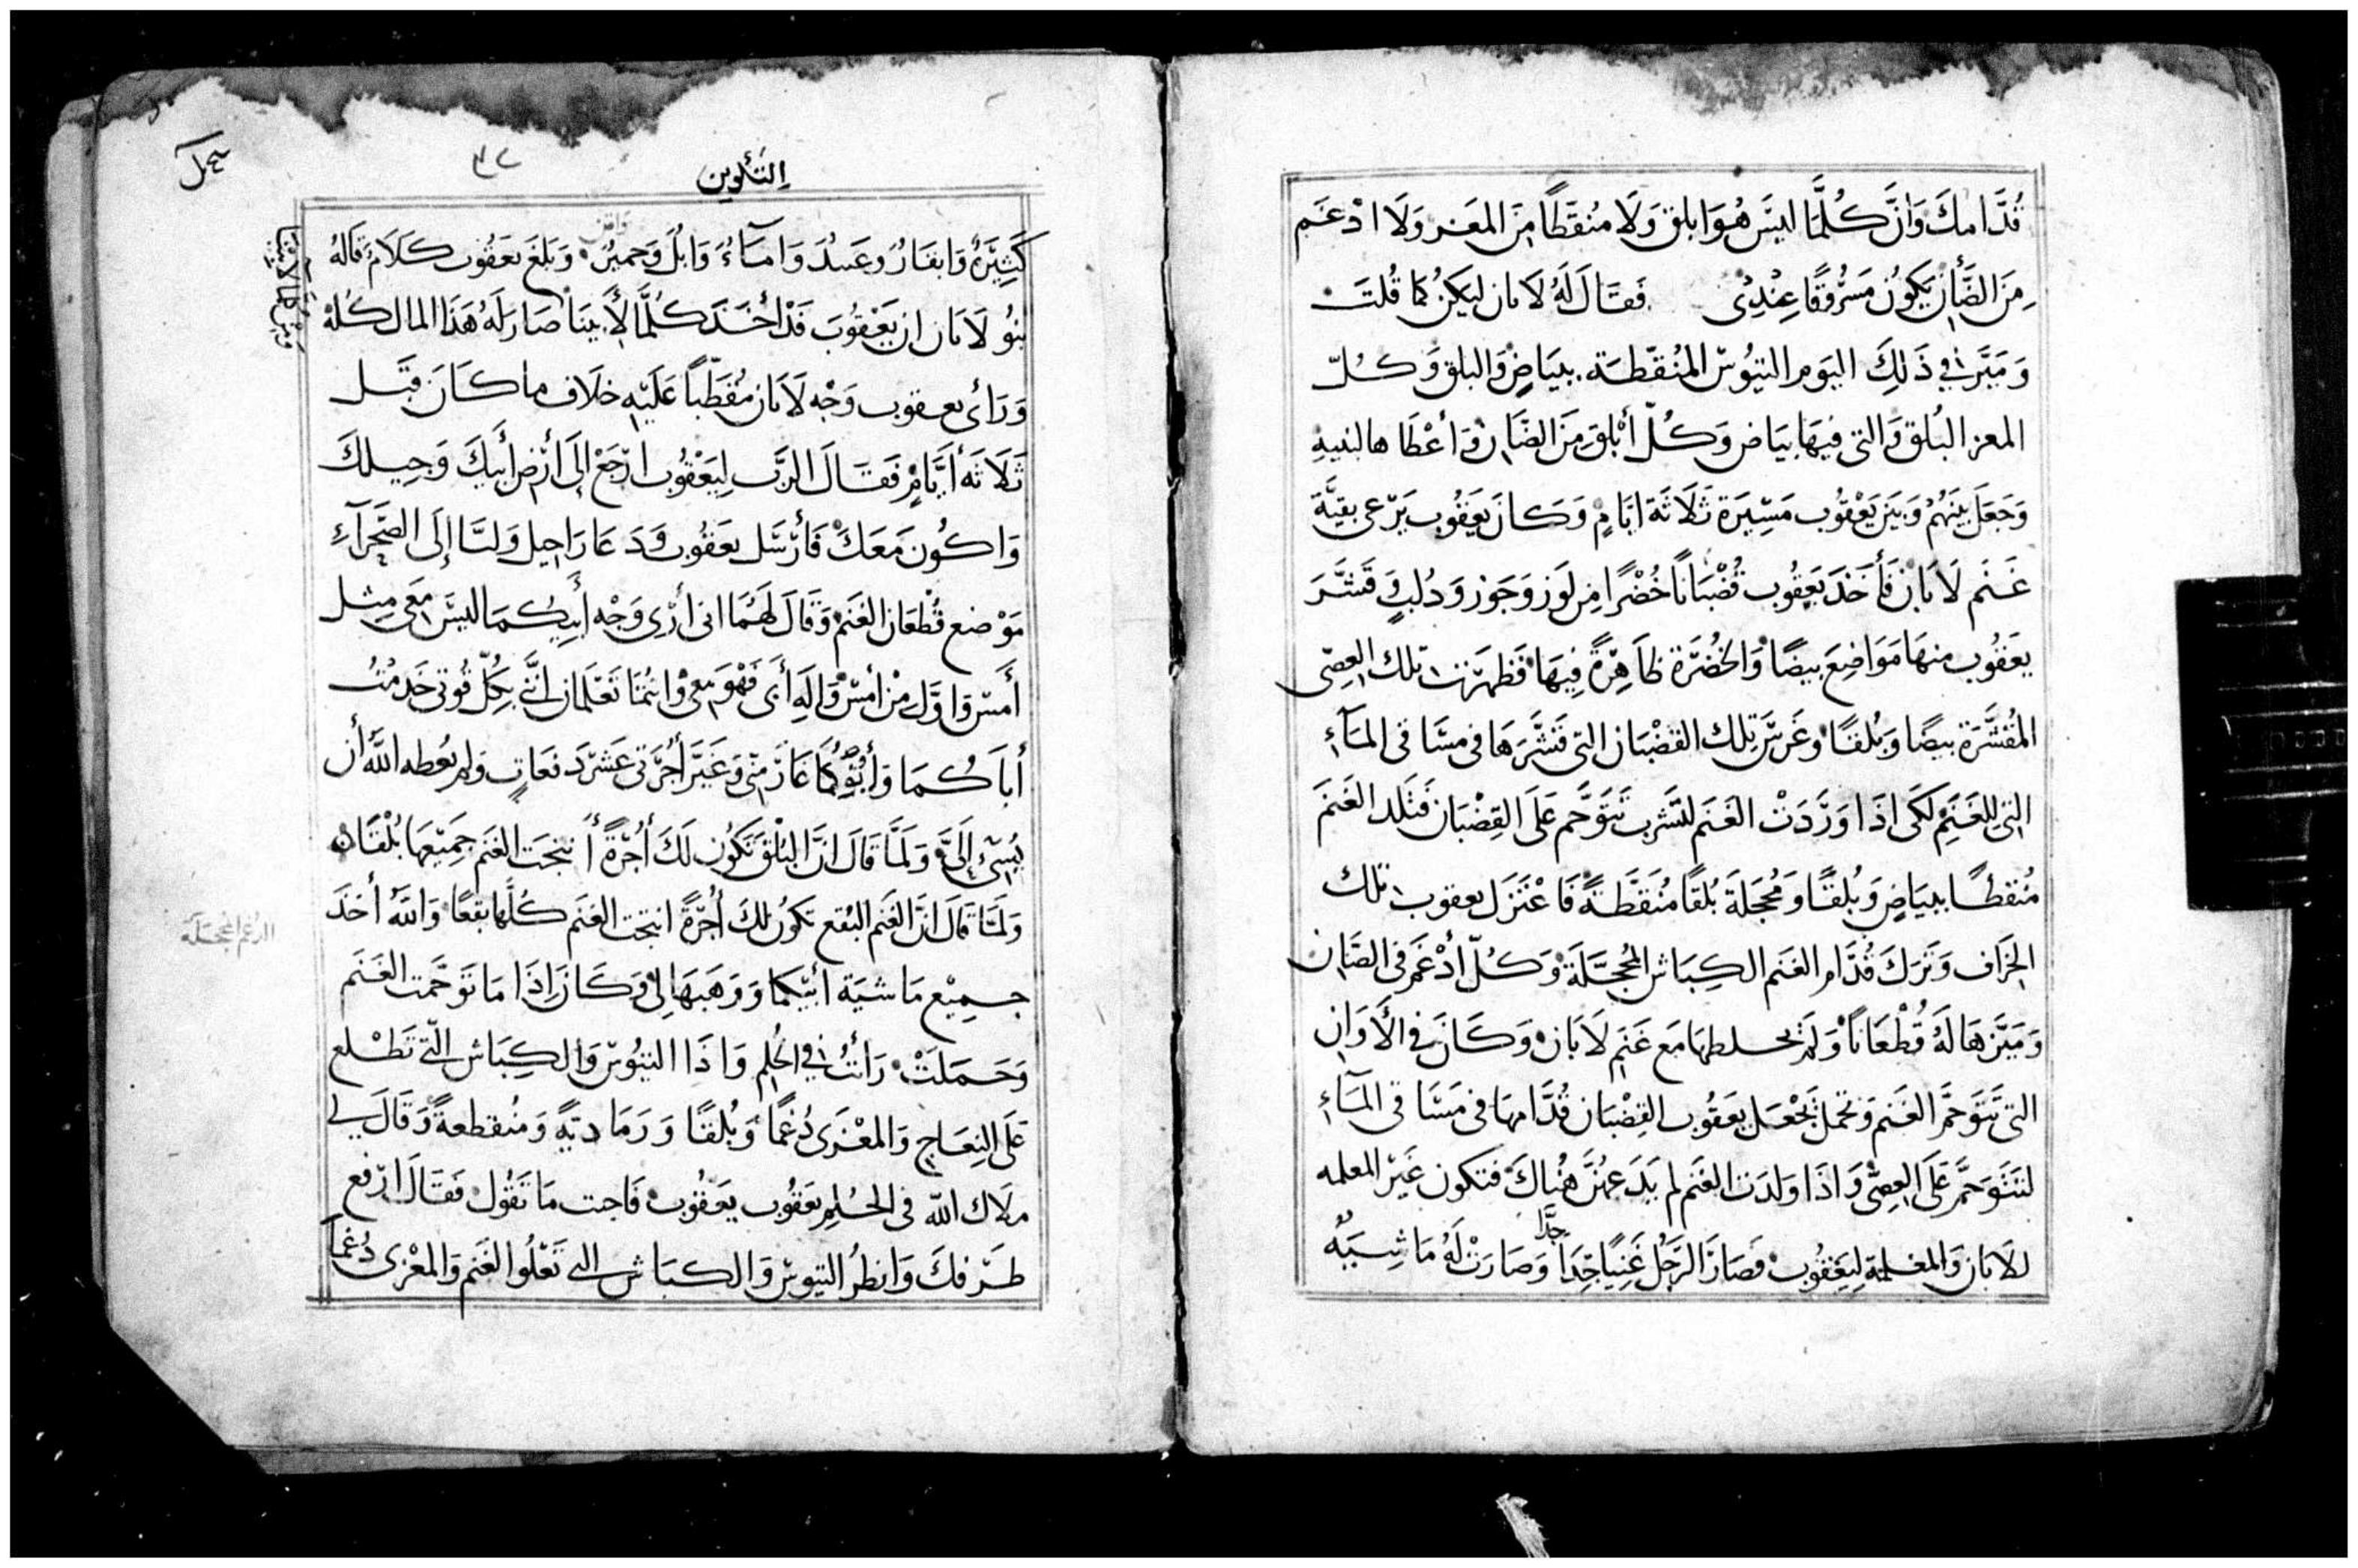 قُدَّامكَ وَانَّ كُلَّمَا ليسَ هُوَ ابلق وَلَا مُنقطًا مِنَ المعَز وَلَا ادْغَم
مِنَ الضَّأن يَكونُ مَسْرُوقًا عِنْدِى فَقَالَ لَهُ لَابان ليَكنُ كما قُلتَ
وَمَيَّز في ذَلِكَ اليَوم التيُوس المُنُقّطَة ببيَاضٍ وَالبلق وَكُلّ
المعز البُلق وَالتى فيهَا بيَاض وَكُلّ أبْلق مِنَ الضَّان وَأعْطَاها لبنيهِ
وَجَعَل بَينَهُمْ وَبَينَ يَعْقُوب مَسِيرَة ثَلَاثَة ايَّامٍ وَكانَ يَعقُوب يَرْعى بقيَّة
غَنَم لَابَان فَأخَذَ يَعقُوب قُضْبَانًا خُضْرًا مِن لَوز وَجَوز وَدُلبٍ وَقَشَّرَ
يعَقُوب منهَا مَوَاضِعَ بيضًا وَالخُضْرَة ظَاهِرَةً فِيهَا فَظهَرَت تلك العِصى
المُقشَّرَة بيضًا وَبُلقًا وغَرسَ تِلك القضْبَان التى قَشَّرَهَا فى مسَاقى المَآء
التى للغَنَم لكَى اذَا وَرَدَتْ الغَنَم لتشرب تتَوَحَّم عَلَى القِضْبَان فَتلد الغَنَم
مُنقطًا ببيَاضٍ وَبُلقًا وَمُحجلَة بُلقًا مُنَقَّطَةً فَاعْتَزَل يعقوب تلك
الخرَاف وَتَرَكَ قُدَّام الغنم الكِبَاش المُحجَّلَة وَكُلّ أدْغَم فى الضَان
وَمَيَّزهَا لَهُ قُطْعَانًا وَلَمْ يخلطهَا مَع غَنَم لَابَان وَكَانَ فى الأَوَان
التى تَتوَحَّم الغَنم وَتحمل يَجْعَل يعَقُوب القضبَان قُدَّامهَا فى مَسَاقى المَآء
لتَتَوَحَّم عَلَى العِصّى وَاذَا وَلدَت الغَنَم لم يَدَعهُنَّ هُنَاكَ فتكون غَيْر المعلمه
للَابَان وَالمعلمة لِيَعقُوب فَصَارَ الرَجُل غَنِيًا جِدًا جدًّا وَصَارَتْ لَهُ مَاشِيَةٌ
التكوين
كَثِيَرةٌ وَابقَارٌ وعَبيدٌ وَامَآءٌ وَابُل وَحَميرٌ وَبَلغَ يَعقُوب كَلَام قَالهُ
بنوُ لَابَان ان يَعْقُوبَ قَدْ أخَذَ كُلَّمَا لأَبينَا صَارَ لَهُ هَذَا المال كُلهُ
وَرَأى يعقوب وَجْه لَابَان مُقطّبًا عَلَيْهِ خلَاف ما كَانَ قَبل
ثَلَاثَة أيَّامٍ فَقَالَ الرَب لِيَعْقُوب ارْجَعْ إلَى أرْض أبيكَ وَجيلكَ
وَاكُون مَعَكَ فَأرْسَل يَعقُوب وَدَعَا رَاحيل وَليَا إلَى الصَّحرآءِ
مَوْضع قُطعَان الغَنَم وَقَالَ لَهُمَا انى أرَى وَجْه أبيكُمَا ليسَ مَعى مِثل
أمسْ وَاوَّل مْن أمسْ وَاله أبى فَهُوَ مَعى وَانتُمَا تَعْلَمَان اننَّى بِكلّ قُوتى خَدمْتُ
أبَاكُمَا وَأبُوكُمَا غَارَ منّى وَغَيَّرَ أجْرَتى عَشْر دَفعَاتٍ وَلم يُعطه اللَّه أن
يُسىَ إلَىَّ وَلَمَّا قَالَ انَّ البُلْقَ تَكُون لَكَ أُجْرَةً أنتجَت الغَنم جَميْعهَا بُلْقًا
وَلَمَّا قَالَ انَّ الغَنم البُقع تكوُن لكَ أُجْرَةً انتجت الغنم كُلّهَا بقعًا وَاللَّه أخذَ
جميْع مَاشيَة أبيْكُما وَوَهَبَهَا لى وَكَانَ اذَا مَا تَوَحَّمت الغَنَم
وَحَمَلَتْ رَأيتُ فى الحُلم وَاذَا التيُوس وَالكِبَاش التّى تَطْلع
عَلَى النِعَاج وَالمعْزَى دُغمًا وَبُلقًا وَرَمَاديَّةٍ وَمُنقطعةً وَقَالَ لى
ملَاك اللّه فى الحُلم يَعقُوب يَعقُوب فَاجبت مَا تَقُول فَقَالَ ارْفع
طَرفكَ وَانظرُ التيوس وَالكبَاش التى تَعْلُوا الغَنَم وَالمعْزى دُغمًا